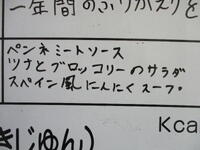 一年間のふりかえりを
ペンネミートソース
ツナとブロッコリーのサラダ
スペイン風にんにくスープ。
Kca
きじゅん)